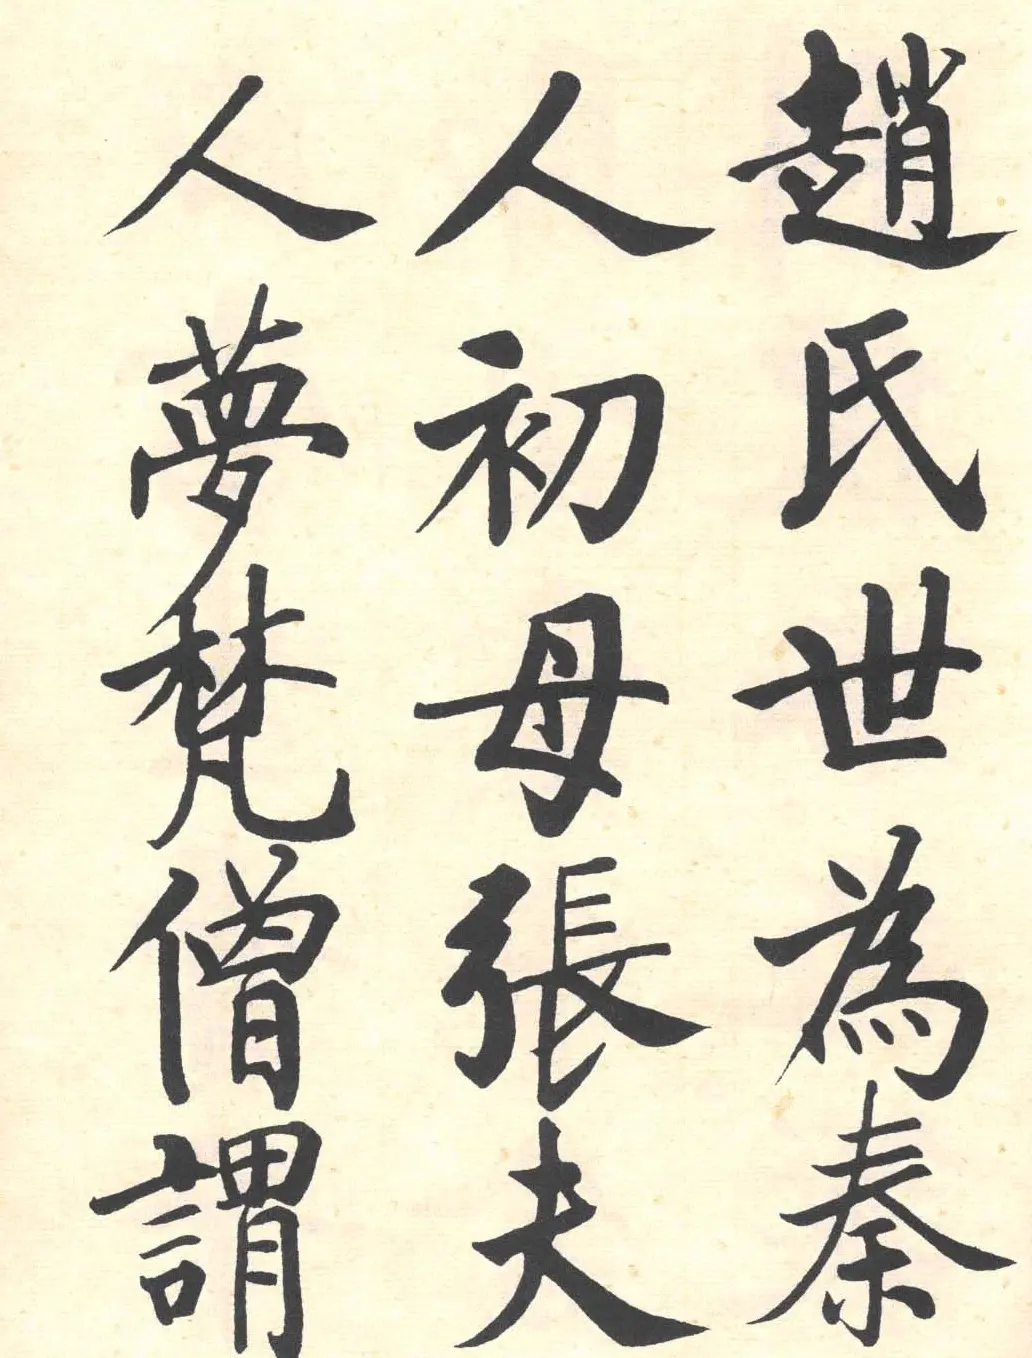 趙氏世為秦
人初母張夫
人夢梵僧謂